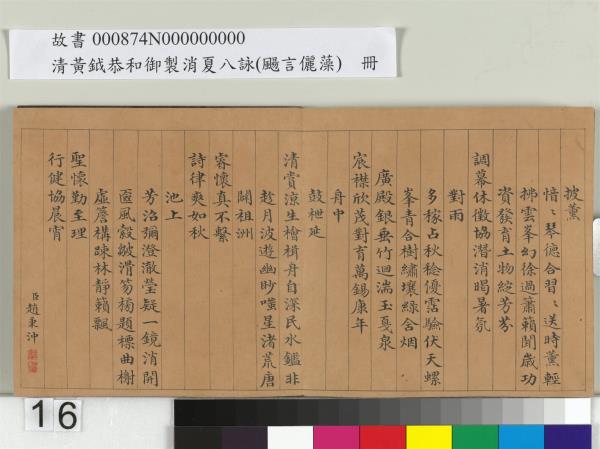 故書 000874N000000000
清黃鉞恭和御製消夏八詠(颺言儷藻) 冊
披薰
愔〻琴德合習〻送時薰輕
拂雲峯幻徐過簫籟聞歲功
資發育土物綻芳芬
調幕休徵協潛消暍暑氛
對雨
多稼占秋稔優霑驗伏天螺
峯青合樹繡壤綠含烟
廣殿銀垂竹迴湍玉戛泉
宸襟欣茂對育萬錫康年
舟中
鼓枻延
清賞涼生檜楫舟自深民水鑑非
趁月波遊幽眇嗤星渚荒唐
闢祖洲
睿懷真不繫
詩律爽如秋
池上
芳沼彌澄澈瑩疑一鏡消開
奩風縠皺滑笏橋題標曲榭
虛簷構疎林靜籟飄
聖懷勤至理
行健協晨宵
臣趙秉沖
16